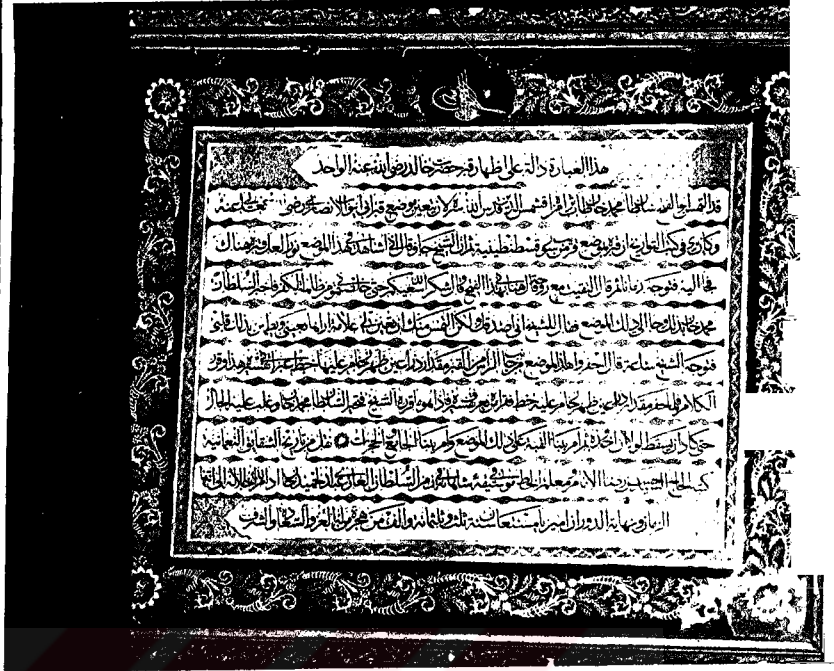 هذا العبارة دالة على اظهار قبر حضرت خالد رضى الله عنه الواحد
السلطان محمد خان شمس الدين قدس الله سره ان يعين موضع قبر ابى ايوب الانصارى رضى عنه
وكان يروى فى كتب التواريخ ان قبره بموضع قريب من سور قسطنطينية ثم ان الشيخ جاء وقال انى اشاهد فى هذا الموضع نورا لعل قبره هناك
فجاء اليه فتوجه زمانا ثم قال التقيت مع روحه قال هنأنى بهذا الفتح قال شكر الله سعيكم حتى خلصتمونى من ظلمة الكفر فاخبر السلطان
محمد خان بذلك جاء الى ذلك الموضع فقال للشيخ انى اصدقك ولكن التمس منك ان تعين لى علامة اراها بعينى ويطمئن بذلك قلبى
فتوجه الشيخ ساعة قال احفروا هذا الموضع من جانب الرأس من القبر مقدار ذراعين يظهر رخام عليه خط عبرانى تفسيره هذا وقرر
الكلام فلما حفر مقدار ذراعين ظهر رخام عليه خط فقرأه من يعرفه وفسره فاذا هو ما قرره الشيخ فتحير السلطان محمد خان وغلب عليه الحال
حتى كاد ان يسقط لولا ان اخذوه ثم امر ببناء القبة على ذلك الموضع وامر ببناء الجامع والحجرات نقل من تاريخ الشقائق النعمانية
كتبه الحاج معلم الخط زمن السلطان الغازى عبد الحميد خان
الزمان ونهاية الدوران امين يا مستعان سنة ثلث وثلثمائة والف من هجرة من له العز والسعادة والشرف